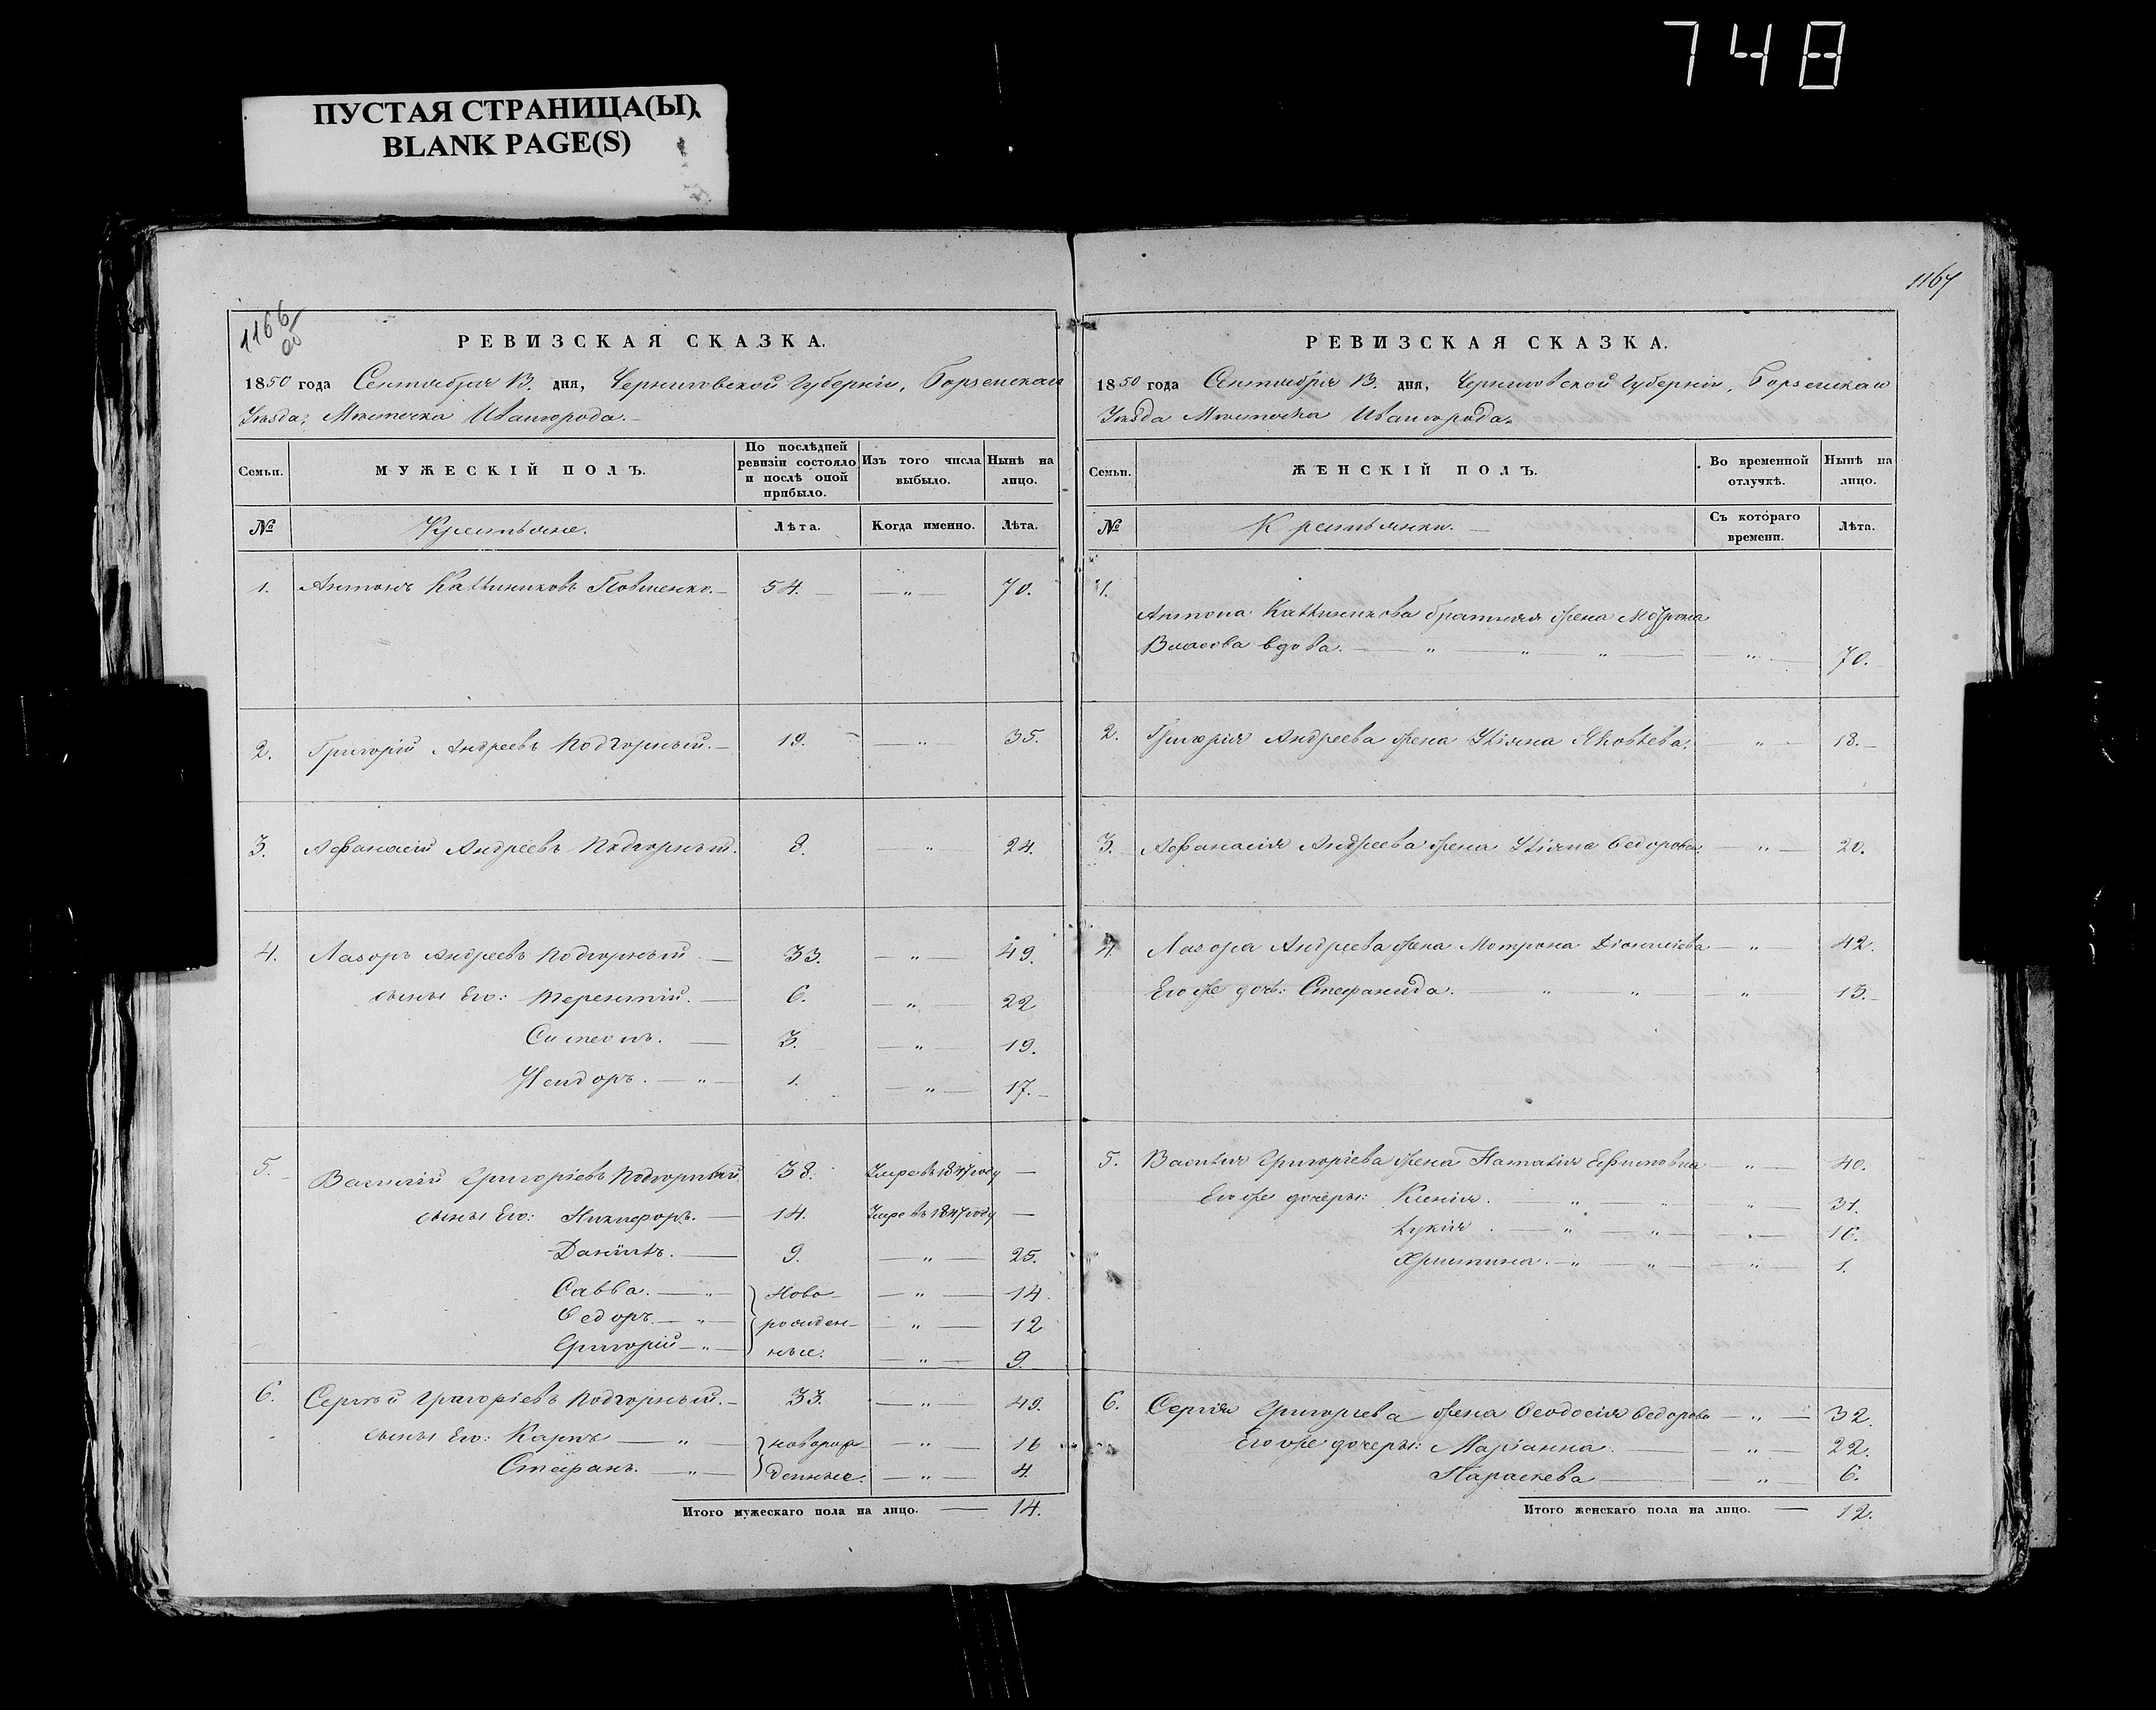 748
ПУСТАЯ СТРАНИЦА(Ы)
BLANK PAGE(S)
1166
об
РЕВИЗСКАЯ СКАЗКА.
1850 года Сентября 13. дня, Черниговской Губерніи, Борзенскаго
Уѣзда, Мѣстечка Ивангорода.
Семьи. МУЖЕСКІЙ ПОЛЪ. По послѣдней ревизіи состояло и послѣ оной прибыло. Изъ того числа выбыло. Нынѣ на лицо.
№ Крестьяне. Лѣта. Когда именно. Лѣта.
1. Антонъ Калиниковъ 54. — " — 70.
2. Григорій Андреевъ Подгорный. 19. — " — 35.
3. Афанасій Андреевъ Подгорный. 8. — " — 24.
4. Лазоръ Андреевъ Подгорный. — 33. — " — 49.
сыны Его: Терентій. — 6. — " — 22
Симеонъ. — 3. — " — 19.
Исидоръ. — " — 1. — " — 17.
5. Василій Григоріевъ Подгорный 38. Умре въ 1847 году —
сыны Его: Никифоръ. — 14. Умре въ 1847 году —
Данилъ. — 9. — " — 25.
Савва. — " — Ново- — " — 14.
Федоръ. — " — рожден- — " — 12
Григорій — " — ные. — " — 9.
6. Сергѣй Григоріевъ Подгорный. — 33. — " — 49.
сыны Его: Карпъ — " — новорож — " — 16
Стефанъ. — " — денные. — " — 4.
Итого мужескаго пола на лицо. — 14.
1167
РЕВИЗСКАЯ СКАЗКА.
1850 года Сентября 13. дня, Черниговской Губерніи, Борзенскаго
Уѣзда Мѣстечка Ивангорода.
Семьи. ЖЕНСКІЙ ПОЛЪ. Во временной отлучкѣ. Нынѣ на лицо.
№ Крестьянки. — Съ котораго времени. Лѣта.
1.
Антона Калиникова братняя жена Мотрона
Власова вдова. — " — " — " — " — 70.
2. Григорія Андреева жена Уліяна Яковлева. — " — 18.
3. Афанасія Андреева жена Уліяна Федорова. — " — 20.
4. Лазора Андреева жена Мотрона Діонисіева — " — 42.
Его же дочь: Стефанида. " " — " — 13.
5. Василія Григоріева жена Наталія Ефимовна — " — 40.
Его же дочеры: Ксенія. — " — " — 31.
Лукія. — " — " — " — 16.
Христина. — " — " — " — 1.
6. Сергія Григоріева жена Феодосія Федорова — " — 32.
Его же дочеры: Маріанна. — " — 22.
Параскева — " — 6.
Итого женскаго пола на лицо. — 12.